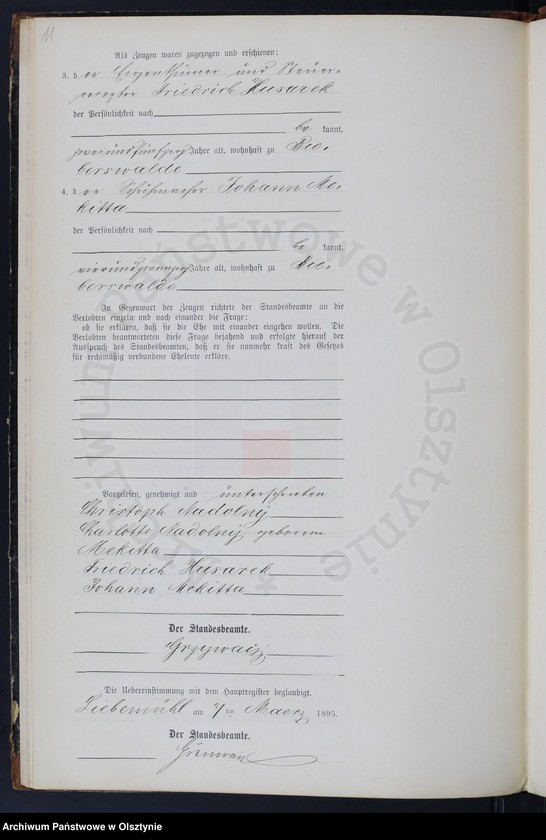 11
Als Zeugen waren zugezogen und erschienen:
3. der Eigenthümer und Steuer-
Friedrich Husarek
der Persönlichkeit nach
be kannt,
zweiundfünfzig Jahre alt, wohnhaft zu Bie-
berswalde
4. der Schuhmacher Johann Me-
kitta
der Persönlichkeit nach
be kannt,
vierundzwanzig Jahre alt, wohnhaft zu Bie-
berswalde
In Gegenwart der Zeugen richtete der Standesbeamte an die
Verlobten einzeln und nach einander die Frage:
ob sie erklären, daß sie die Ehe mit einander eingehen wollen. Die
Verlobten beantworteten diese Frage bejahend und erfolgte hierauf der
Ausspruch des Standesbeamten, daß er sie nunmehr kraft des Gesetzes
für rechtmäßig verbundene Eheleute erkläre.
Vorgelesen, genehmigt und unterschrieben
Christoph Nadolny
Charlotte Nadolny geborene
Mekitta
Friedrich Husarek
Johann Mekitta
Der Standesbeamte.
Die Uebereinstimmung mit dem Hauptregister beglaubigt.
Liebemühl am Maerz 1895.
Der Standesbeamte.
Archiwum Państwowe w Olsztynie
Archiwum Państwowe w Olsztynie